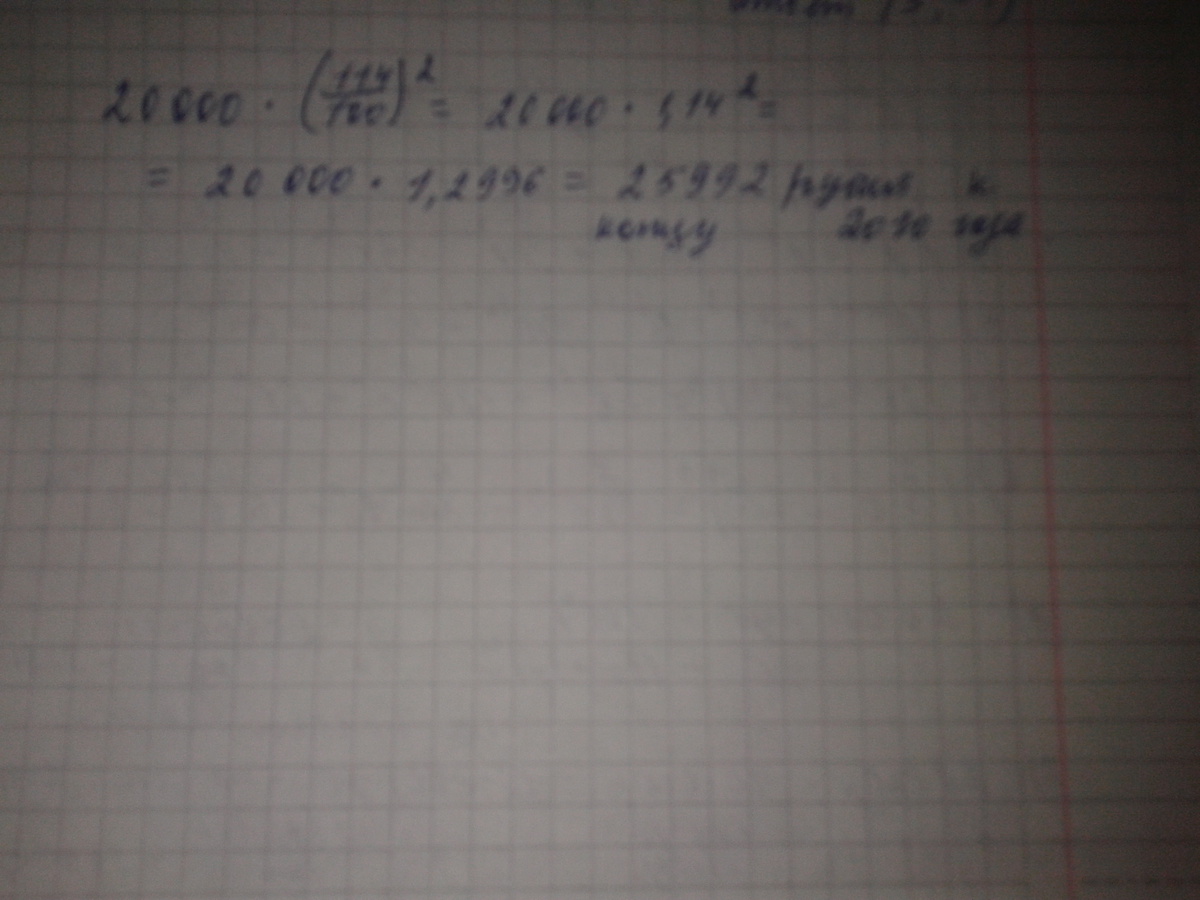 ответ (3;
20 000 · (114/100)² = 20 000 · 1,14² =
= 20 000 · 1,2996 = 25992 рубля к
концу 2010 года